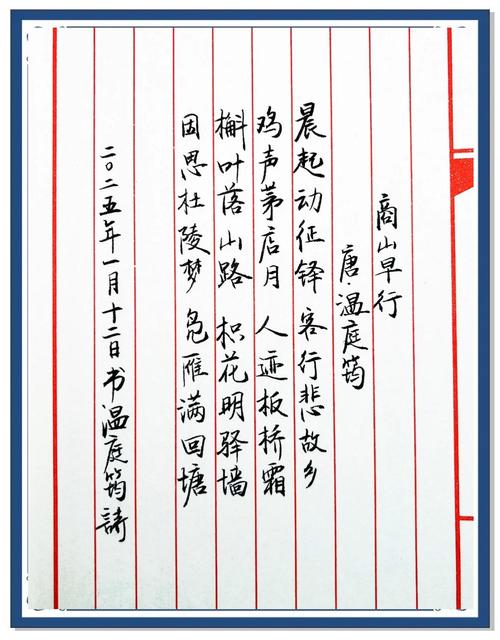 商山早行
唐·温庭筠
晨起动征铎 客行悲故乡
鸡声茅店月 人迹板桥霜
槲叶落山路 枳花明驿墙
因思杜陵梦 凫雁满回塘
二〇二五年一月十二日书温庭筠詩